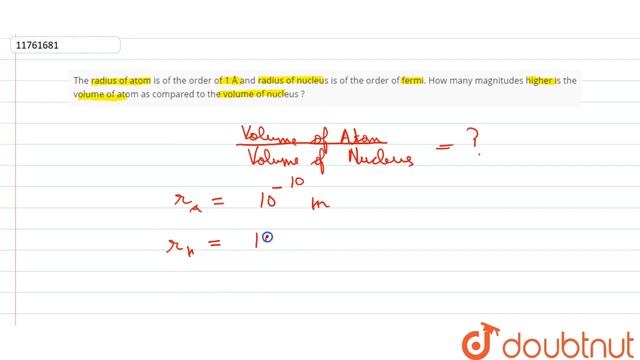 11761681
The radius of atom is of the order of 1 Å and radius of nucleus is of the order of fermi. How many magnitudes higher is the
volume of atom as compared to the volume of nucleus ?
Volume of Atom
Volume of Nucleus = ?
r_A = 10^-10 m
r_N = 10
doubtnut